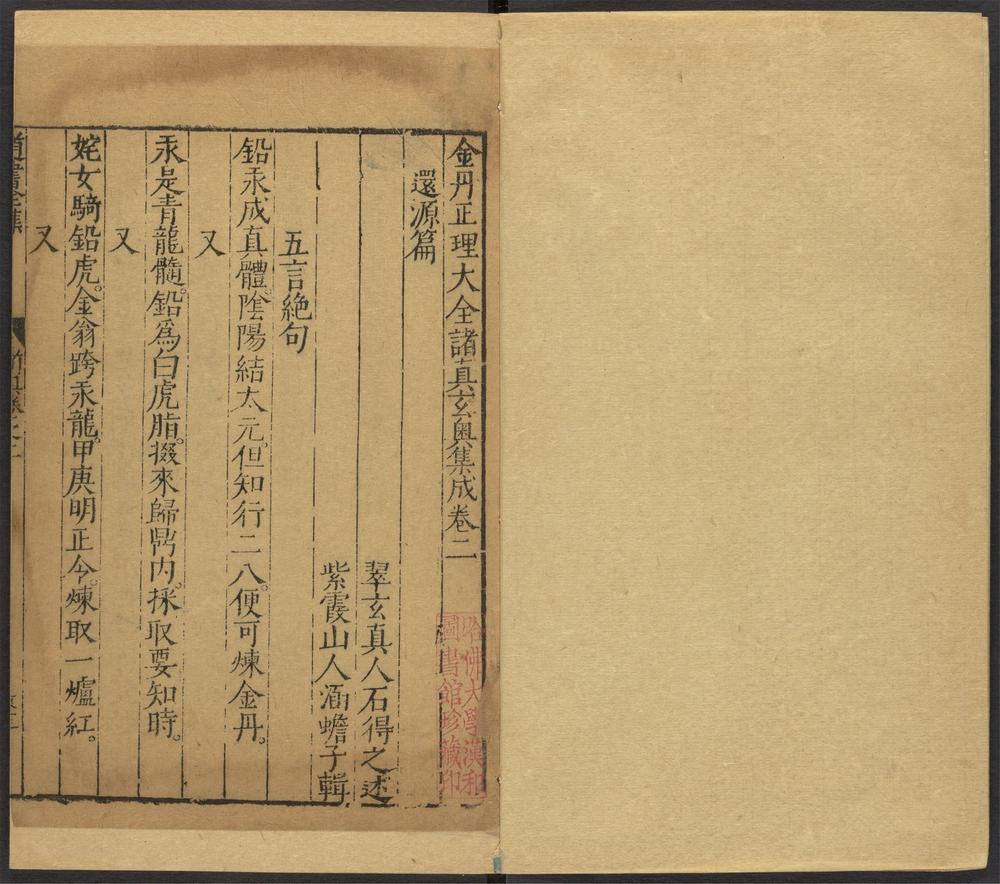 金丹正理大全諸真玄奧集成卷二
還源篇
翠玄真人石得之述
紫霞山人涵蟾子輯
五言絕句
鉛汞成真體。陰陽結太元。但知行二八。便可煉金丹。
又
汞是青龍髓。鉛為白虎脂。掇來歸鼎內。採取要知時。
又
姹女騎鉛虎。金翁跨汞龍。甲庚明正令。煉取一爐紅。
又
道書全集
哈佛大學漢和
圖書館珍藏印